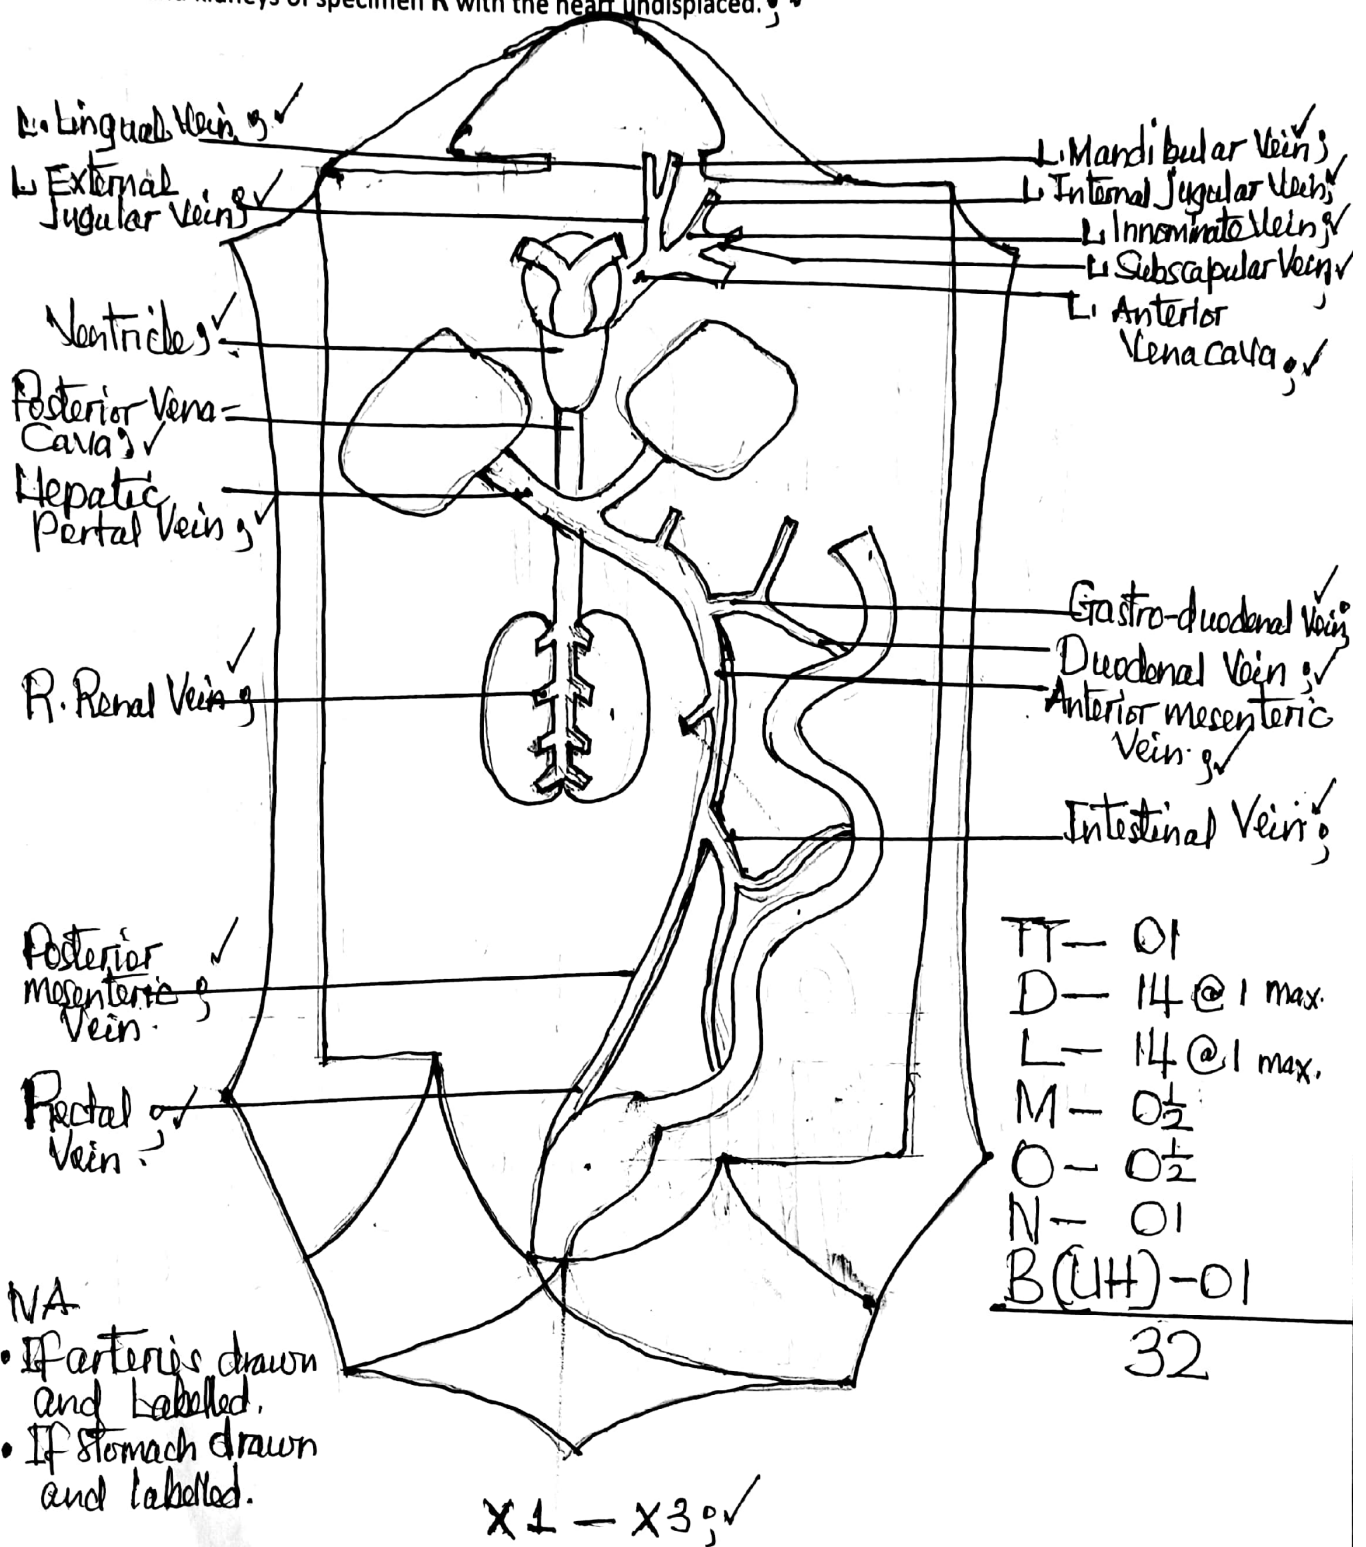 kidneys of specimen R with the heart undisplaced. ;
L. Lingual Vein ; ✓
L External
Jugular Vein ; ✓
Ventricle ; ✓
Posterior Vena-
Cava ; ✓
Hepatic
Portal Vein ; ✓
R. Renal Vein ; ✓
Posterior ✓
mesenteric ;
Vein.
Rectal ; ✓
Vein.
NA
• If arteries drawn
and Labelled.
• If stomach drawn
and labelled.
L. Mandibular Vein ; ✓
L. Internal Jugular Vein ; ✓
L. Innominate Vein ; ✓
L. Subscapular Vein ; ✓
L. Anterior
Vena cava ; ✓
Gastro-duodenal Vein ; ✓
Duodenal Vein ; ✓
Anterior mesenteric
Vein. ; ✓
Intestinal Vein ; ✓
TT — 01
D — 14 @ 1 max.
L — 14 @ 1 max.
M — 0½
O — 0½
N — 01
B(UH) - 01
32
X1 — X3 ; ✓